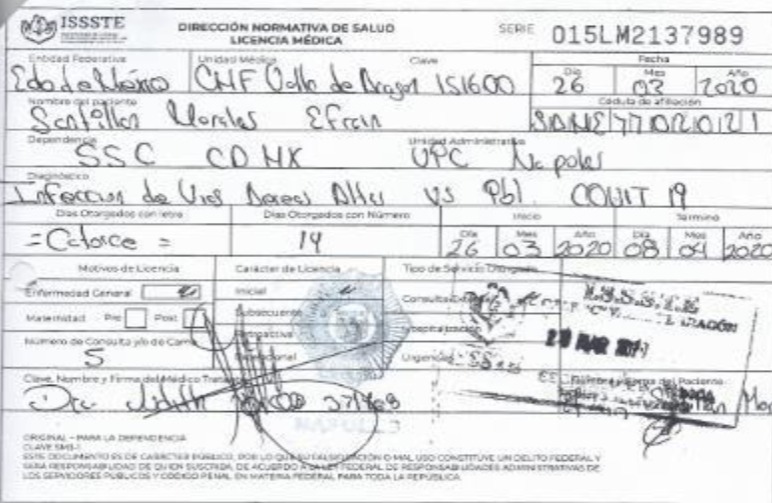 ISSSTE
DIRECCIÓN NORMATIVA DE SALUD
LICENCIA MÉDICA
SERIE 015LM2137989
Entidad Federativa Unidad Médica Clave Fecha
Edo de México CMF Valle de Aragon 151600
Día Mes Año
26 03 2020
Nombre del paciente Cédula de afiliación
Santillan Morales Efrain
Dependencia Unidad Administrativa
SSC CDMX UPC Napoles
Diagnóstico
Infeccion de Vias Aereas Altas VS Pbl. COVIT 19
Días Otorgados con letra Días Otorgados con Número Inicio Término
= Catorce = 14
Día Mes Año Día Mes Año
26 03 2020 08 04 2020
Motivos de Licencia Carácter de Licencia Tipo de Servicio Otorgado
Enfermedad General Inicial Consulta Externa
Maternidad Pre Post Subsecuente Hospitalización
Retroactiva
Número de Consulta y/o de Cama Excepcional Urgencias
5
Clave, Nombre y Firma del Médico Tratante
Dra. Judith
ORIGINAL - PARA LA DEPENDENCIA
CLAVE SM3-1
ESTE DOCUMENTO ES DE CARÁCTER PÚBLICO, POR LO QUE SU FALSIFICACIÓN O MAL USO CONSTITUYE UN DELITO FEDERAL Y
SERÁ RESPONSABILIDAD DE QUIEN SUSCRIBA, DE ACUERDO A LA LEY FEDERAL DE RESPONSABILIDADES ADMINISTRATIVAS DE
LOS SERVIDORES PÚBLICOS Y CÓDIGO PENAL EN MATERIA FEDERAL PARA TODA LA REPÚBLICA.